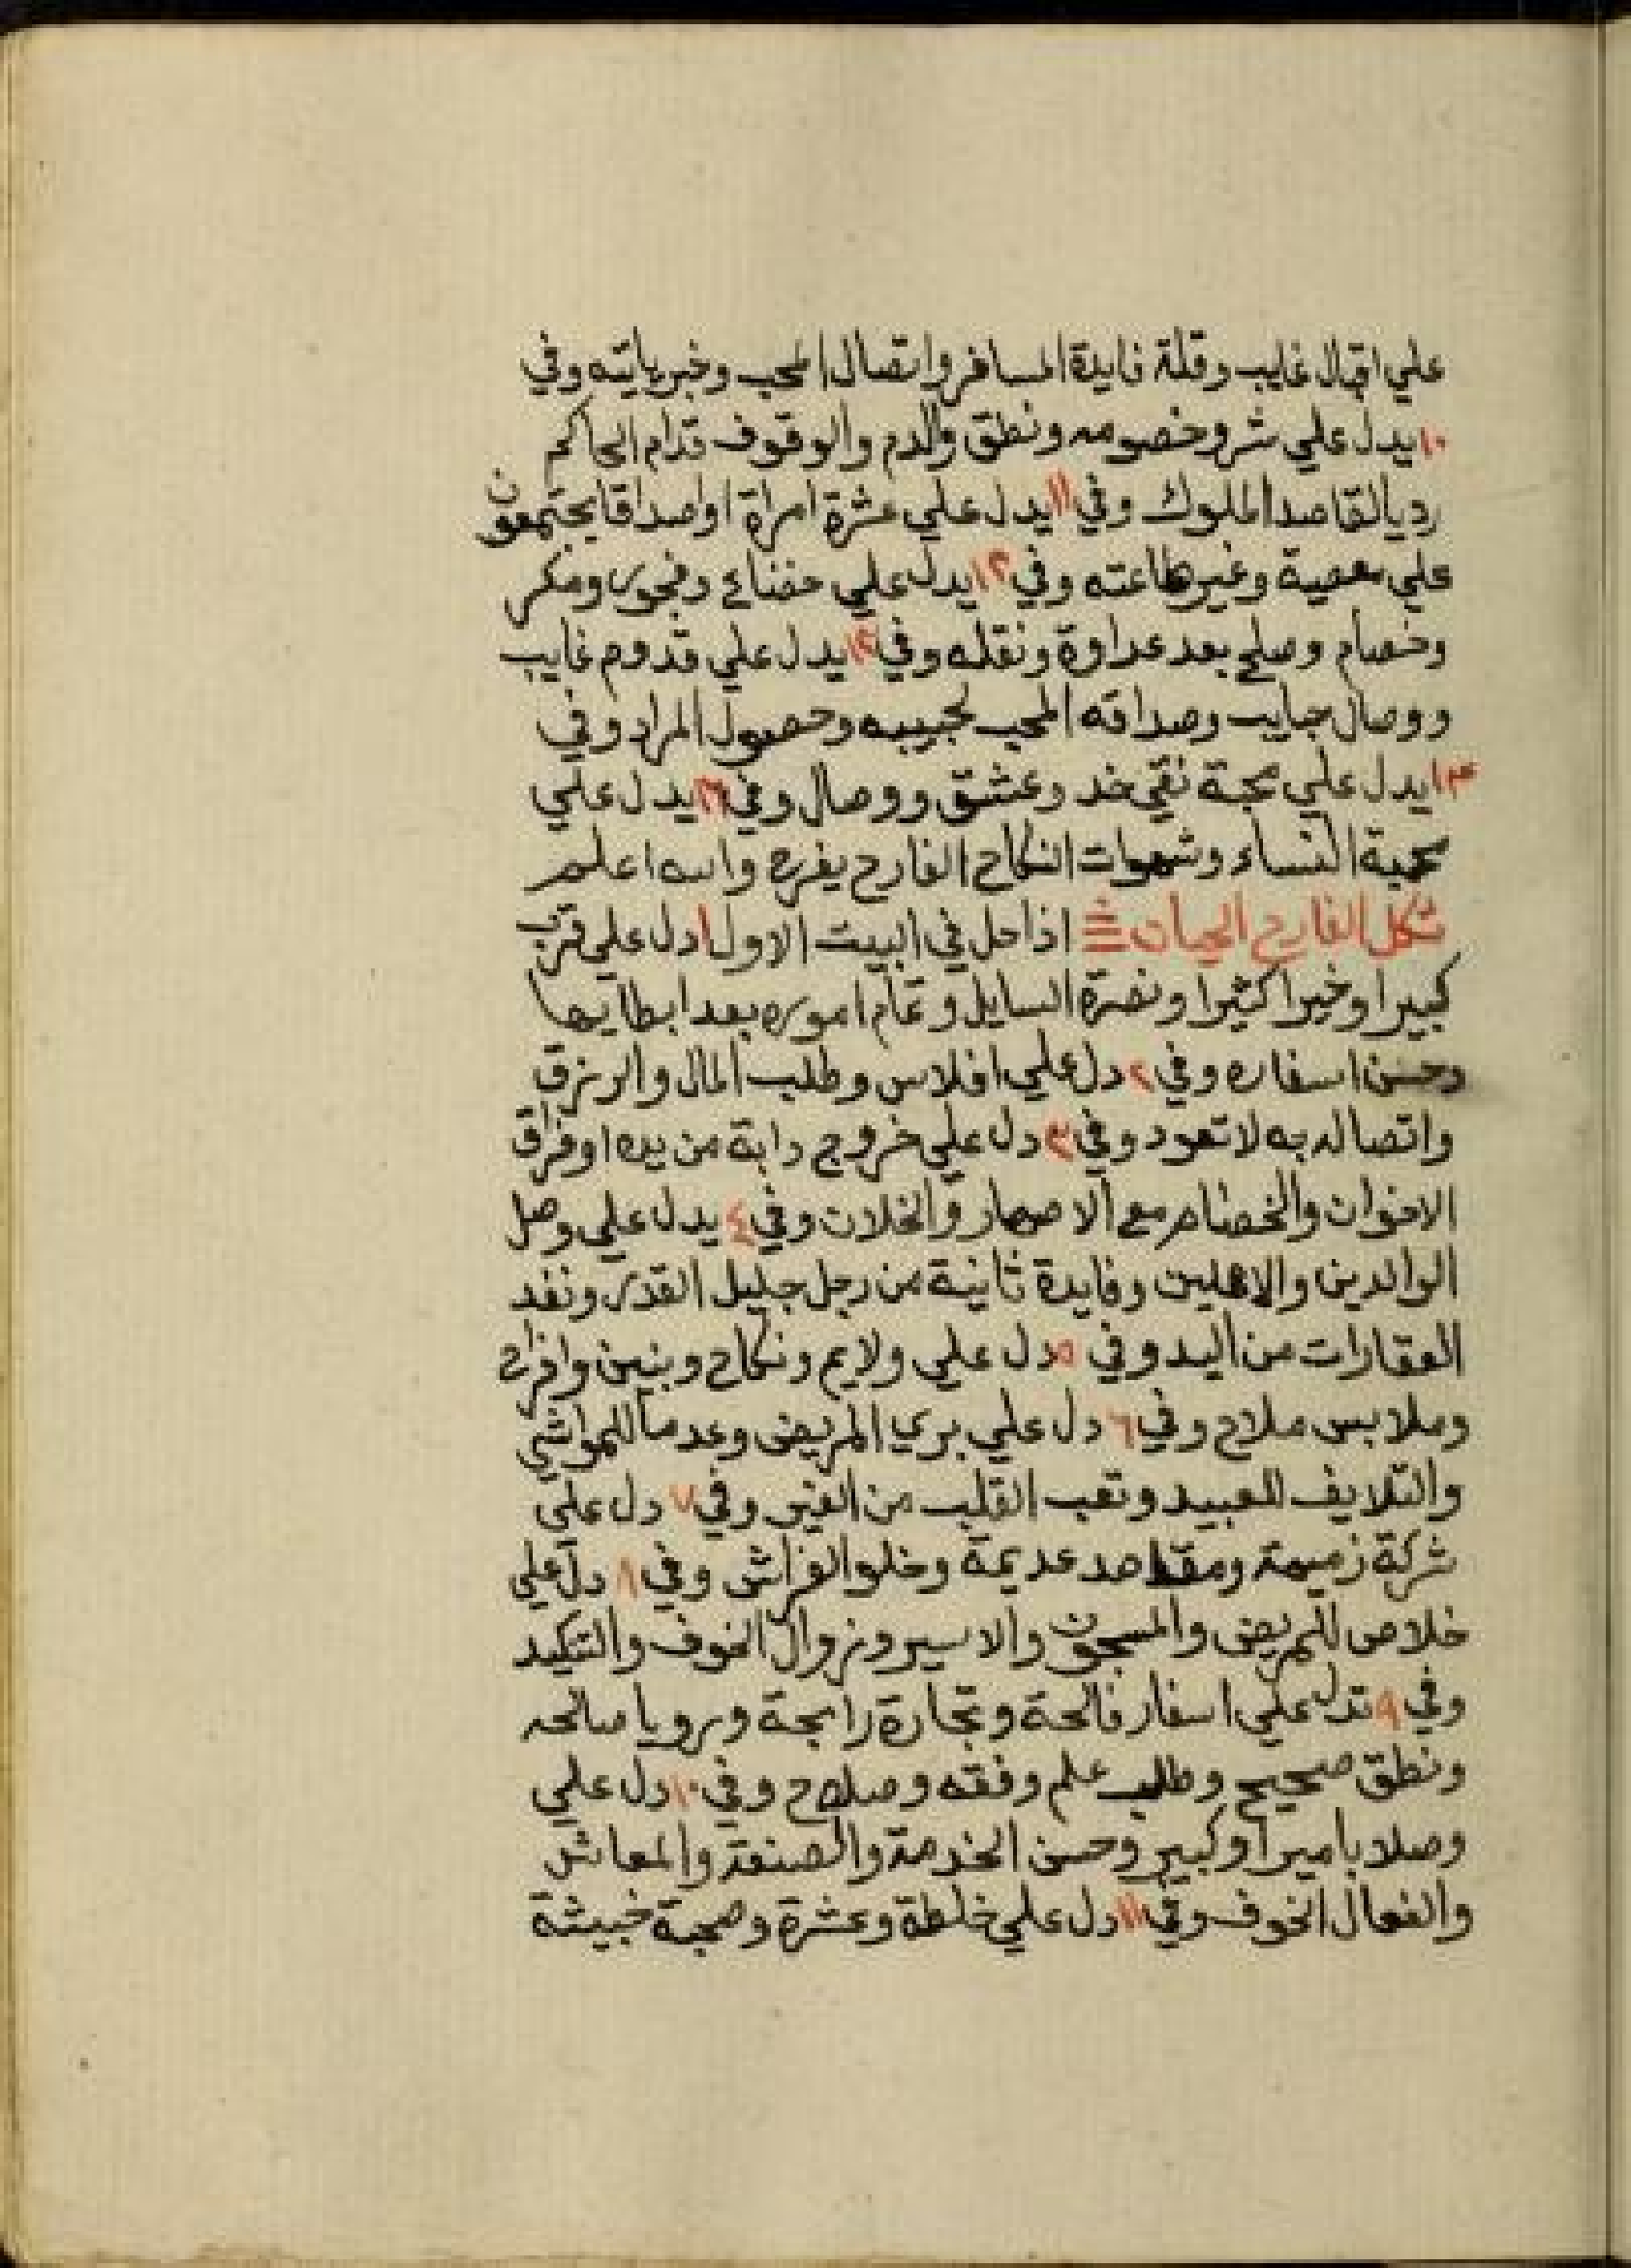 علي اقبال غايب وقلة فايدة المسافر واتصال المحب وخبر ياتيه وفي
١٠ يدل علي شر وخصومه ونطق والدم والوقوف قدام الحاكم
ردي القاصد الملوك وفي ١١ يدل علي عشرة امراة او صداقا يجتمعون
علي معصية وغير طاعته وفي ١٢ يدل علي خفناع وفجور ومكر
وخصام وصلح بعد عداوة ونقله وفي يدل علي قدوم غايب
ووصال حبايب وصداقه المحب لحبيبه وحصول المراد وفي
يدل علي محبة نقي خد وعشق ووصال وفي يدل علي
محبة النساء وشهوات النكاح الفارح يفرح والله اعلم
شكل الفارح الحيان اذا حل في البيت الاول ١ دل علي قرب
كبيرا وخيرا كثيرا ونصرة السايل وتمام اموره بعد ابطايها
وحسن اسفاره وفي ٢ دل علي افلاس وطلب المال والرزق
واتصاله به لا تعود وفي ٣ دل علي خروج دابة من يده او فراق
الاخوان والخصام مع الاصهار والخلان وفي ٤ يدل علي وصل
الوالدين والاهلين وفايدة ثانية من رجل جليل القدر ونفد
العقارات من اليد وفي ٥ دل علي ولايم ونكاح وبنين وافراح
وملابس ملاح وفي ٦ دل علي بري المريض وعدما للمواشي
والتلايف للعبيد وتعب القلب من الغير وفي ٧ دل علي
شركة زميمة ومقاصد عديمة وخلو الفراش وفي ٨ دل علي
خلاص للمريض والمسجون والاسير وزوال الخوف والتنكيد
وفي ٩ تدل علي اسفار فالحة وتجارة رابحة ورويا صالحه
ونطق صحيح وطلب علم وفقه وصلاح وفي ١٠ دل علي
وصلا بامير او كبير وحسن الخدمة والصنعة والمعاش
والفعال الخوف وفي ١١ دل علي خلطة وعشرة وصحبة خبيثه